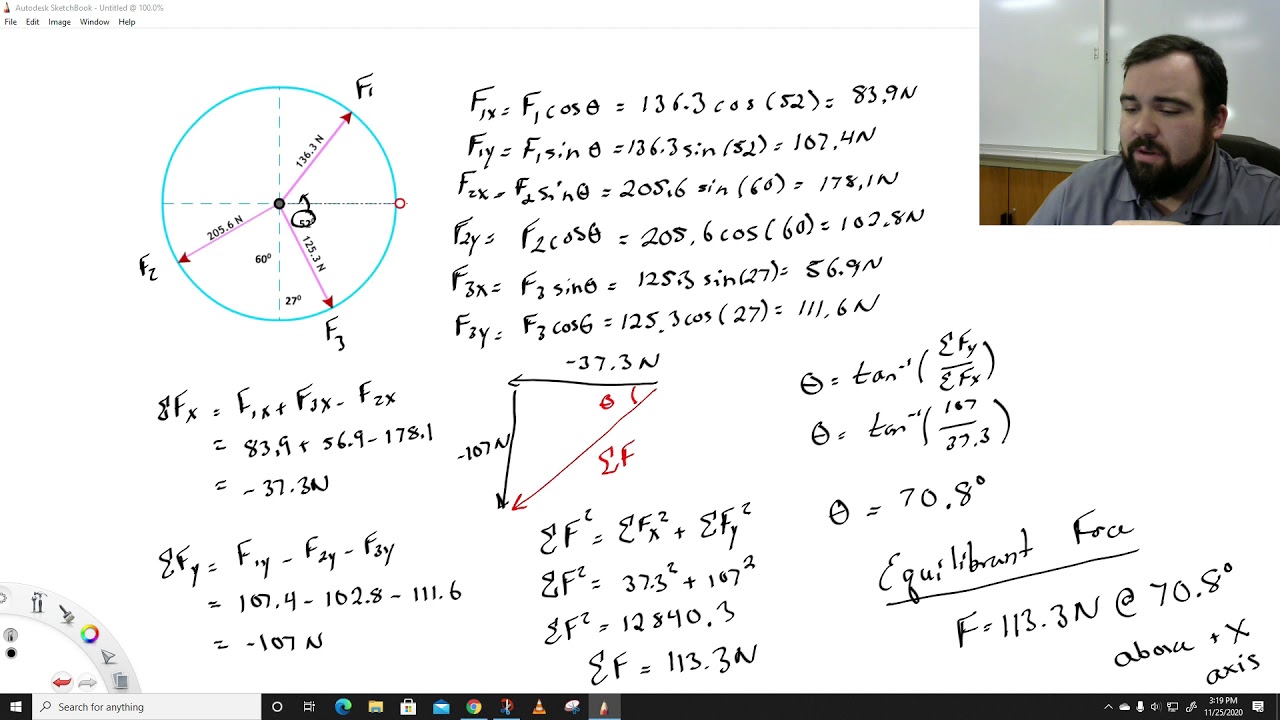 Autodesk SketchBook - Untitled @ 100.0%
File Edit Image Window Help
F1
136.3 N
52°
205.6 N
F2
60⁰
125.3 N
27⁰
F3
F1x = F1cosθ = 136.3 cos(52) = 83.9N
F1y = F1sin θ = 136.3 sin(52) = 107.4N
F2x = F2 sinθ = 205.6 sin(60) = 178.1N
F2y = F2cosθ = 205.6cos(60) = 102.8N
F3x = F3 sinθ = 125.3 sin(27) = 56.9N
F3y = F3 cosθ = 125.3cos(27) = 111.6N
ΣFx = F1x + F3x - F2x
= 83.9 + 56.9 - 178.1
= -37.3N
ΣFy = F1y - F2y - F3y
= 107.4 - 102.8 - 111.6
= -107 N
-37.3N
θ
-107N
ΣF
ΣF² = ΣFx² + ΣFy²
ΣF² = 37.3² + 107²
ΣF² = 12840.3
ΣF = 113.3N
θ = tan⁻¹(ΣFy/ΣFx)
θ = tan⁻¹(107/37.3)
θ = 70.8°
Equilibrant Force
F = 113.3N @ 70.8°
above + X
axis
Search for anything
3:19 PM
11/25/2020